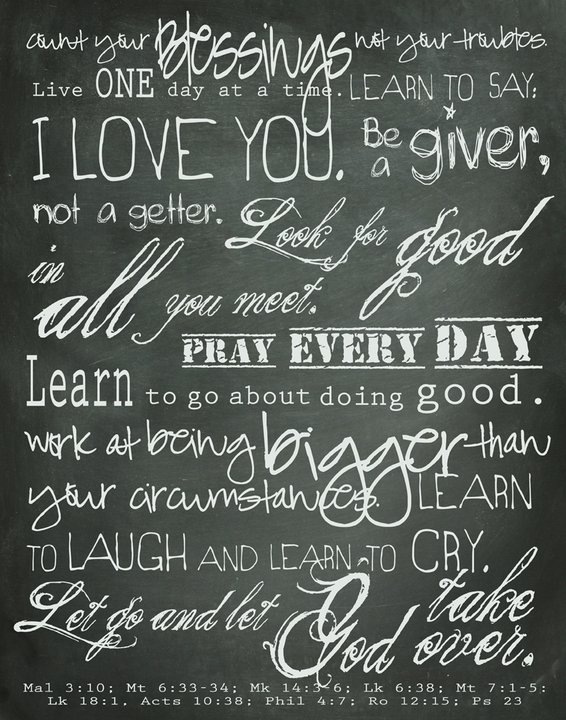 count your Blessings not your troubles.
Live ONE day at a time. LEARN TO SAY:
I LOVE YOU. Be a giver,
not a getter. Look for good
in all you meet.
PRAY EVERY DAY
Learn to go about doing good.
work at being bigger than
your circumstances. LEARN
TO LAUGH AND LEARN TO CRY.
Let go and let God take over.
Mal 3:10; Mt 6:33-34; Mk 14:3-6; Lk 6:38; Mt 7:1-5:
Lk 18:1, Acts 10:38; Phil 4:7; Ro 12:15; Ps 23